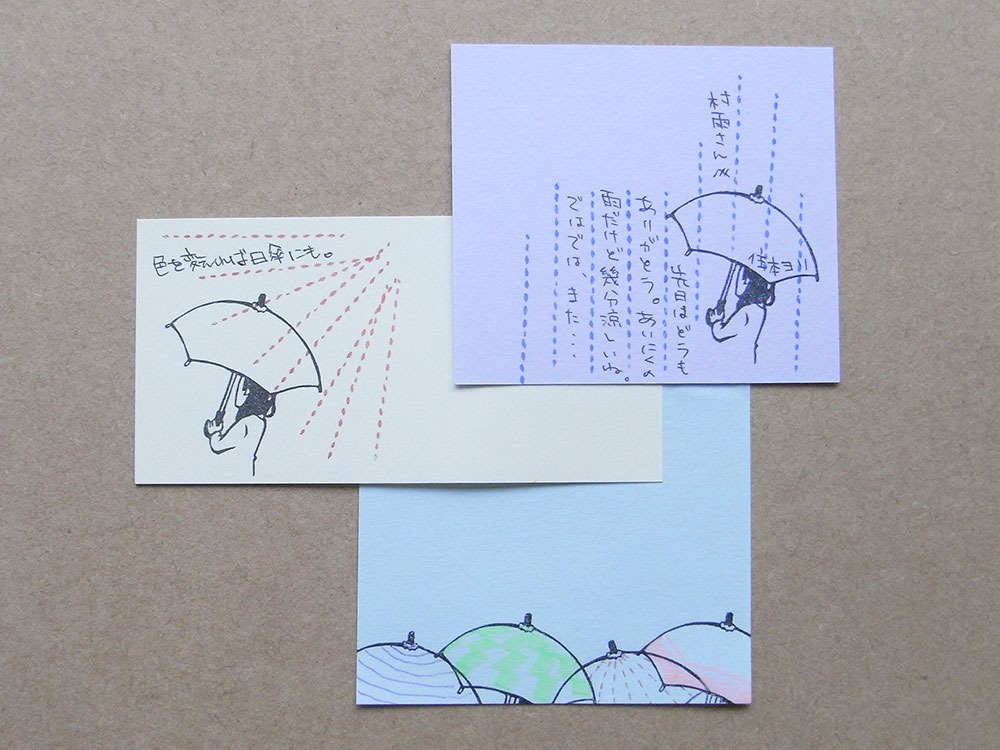 村雨さんへ
先日はどうも
ありがとう。あいにくの
雨だけど幾分涼しいね。
ではでは、また...
色を変えれば日傘にも。